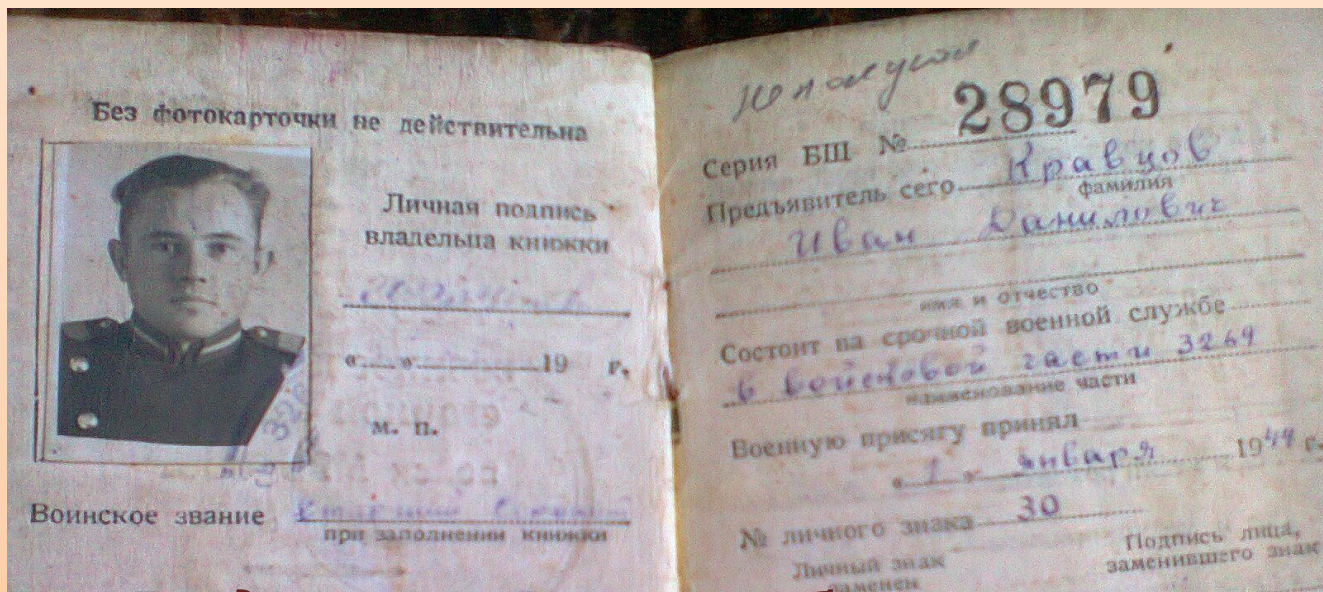 Без фотокарточки не действительна
Личная подпись
владельца книжки
« » 19 г.
м. п.
Воинское звание Старший
при заполнении книжки
28979
Серия БШ №
Предъявитель сего Кравцов
фамилия
Иван Данилович
имя и отчество
Состоит на срочной военной службе
в войсковой части 3269
наименование части
Военную присягу принял
« 1 » января 1944 г.
№ личного знака 30
Личный знак
заменен
Подпись лица,
заменившего знак